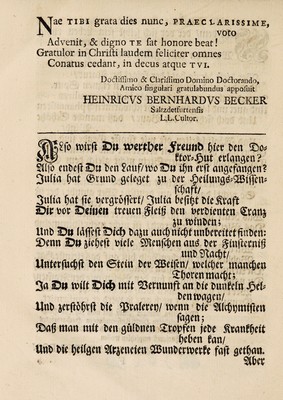 Nae TIBI grata dies nunc, PRAECLARISSIME,
voto
Advenit, & digno TE sat honore beat!
Gratulor in Christi laudem feliciter omnes
Conatus cedant, in decus atque TVI.
Doctissimo & Clarissimo Domino Doctorando,
Amico singulari gratulabundus apposuit
HEINRICVS BERNHARDVS BECKER
Saltzdetfurtensis
L.L. Cultor.
Also wirst Du werther Freund hier den Do-
ktor-Hut erlangen?
Also endest Du den Lauf/ wo Du ihn erst angefangen?
Julia hat Grund geleget zu der Heilungs-Wissen-
schaft/
Julia hat sie vergrössert/ Julia besitzt die Kraft
Dir vor Deinen treuen Fleiß den verdienten Crantz
zu winden;
Und Du lässest Dich dazu auch nicht unbereitet finden:
Denn Du ziehest viele Menschen aus der Finsterniß
und Nacht/
Untersuchst den Stein der Weisen/ welcher manchen
Thoren macht;
Ja Du wilt Dich mit Vernunft an die dunkeln Hel-
den wagen/
Und zerstöhrst die Pralerey/ wenn die Alchymisten
sagen;
Daß man mit den güldnen Tropfen jede Krankheit
heben kan/
Und die heilgen Arzeneien Wunderwerke fast gethan.
Aber